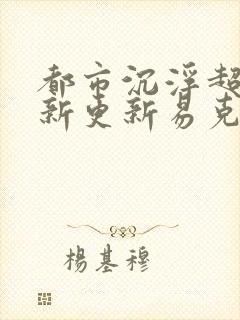 都市沉浮超
新更新易克
楊基穆